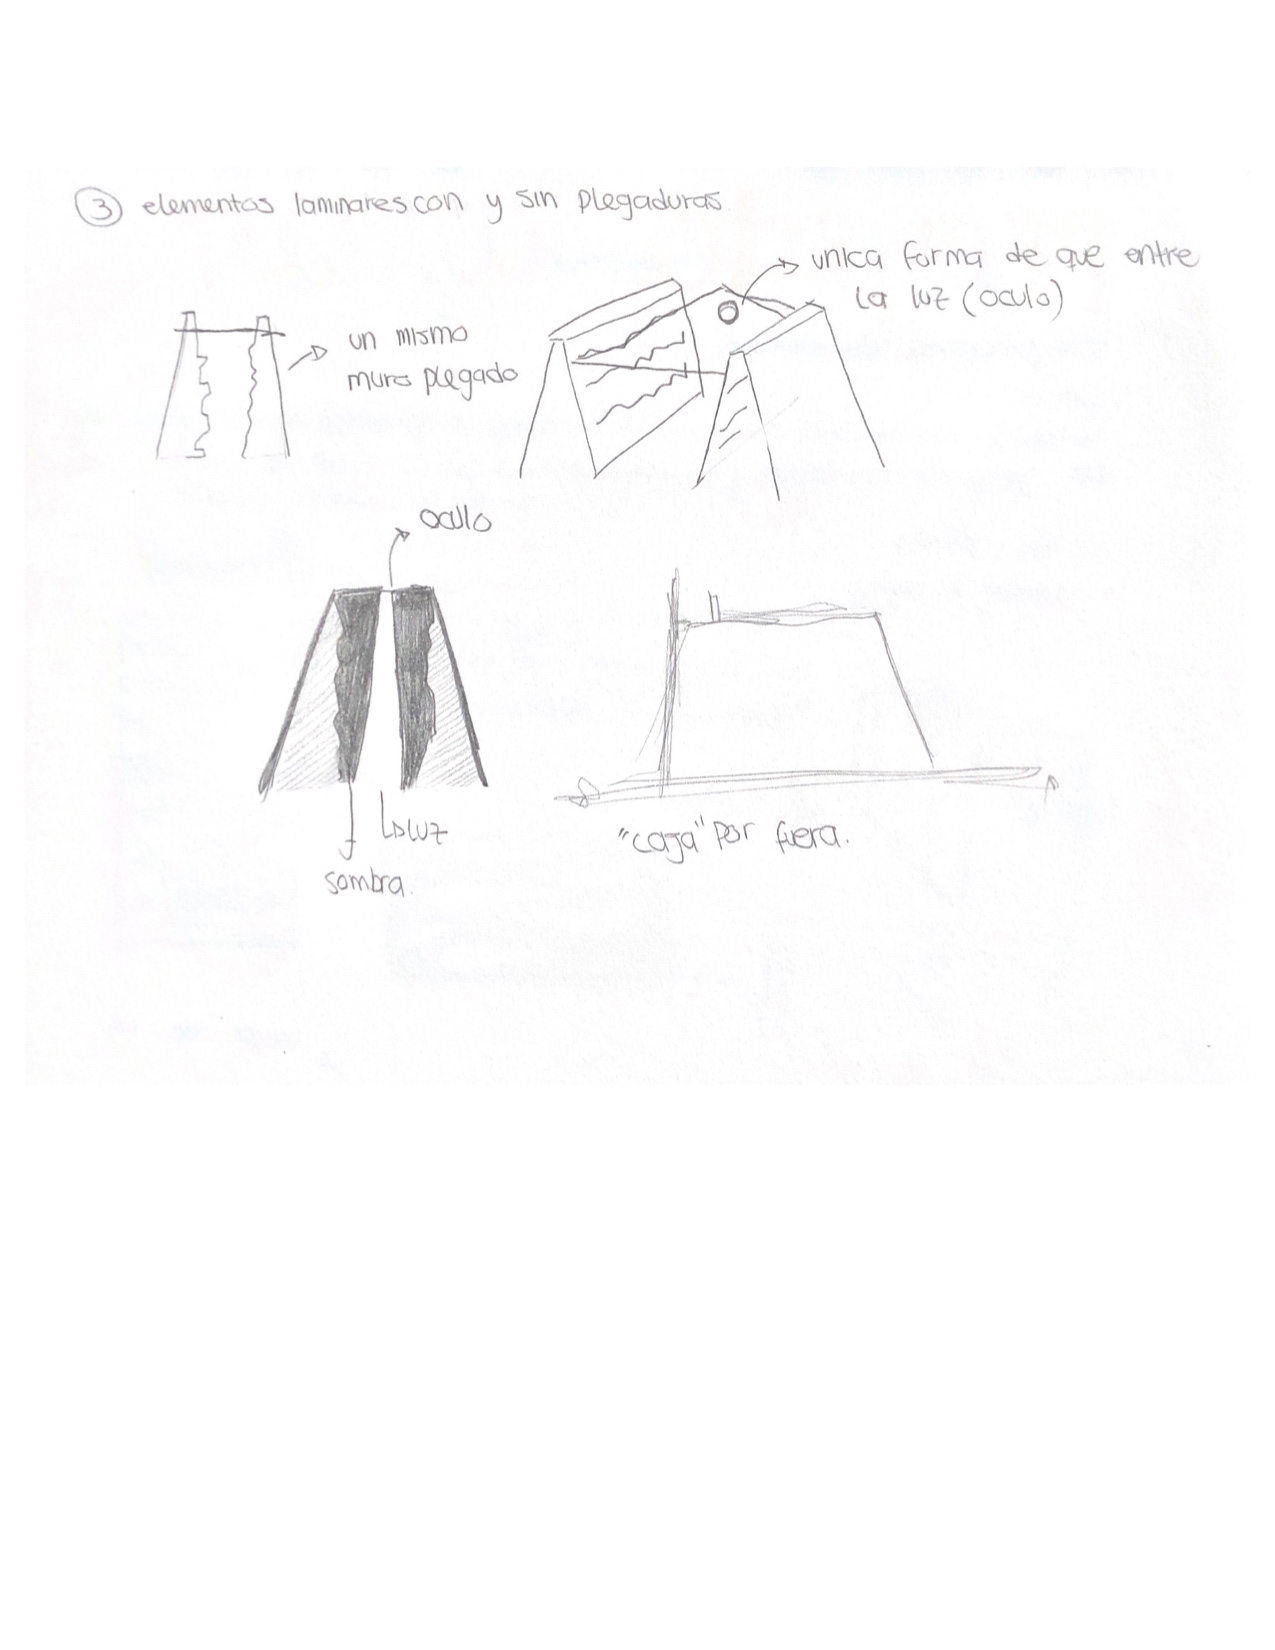 3 elementos laminares con y sin plegaduras
unica forma de que entre
la luz (oculo)
un mismo
muro plegado
oculo
luz
sombra.
"caja" por fuera.